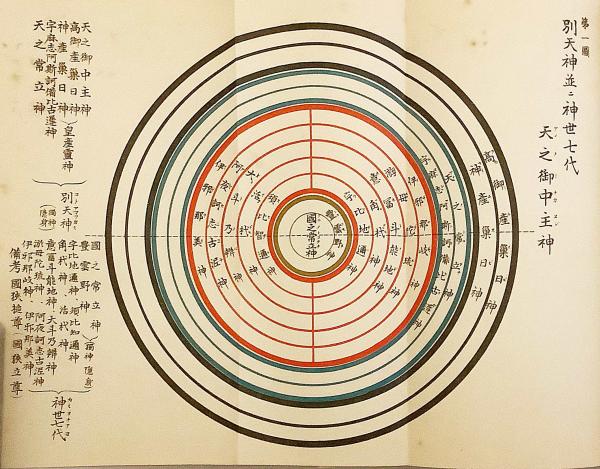 第一圖
別天神並ニ神世七代
天之御中主神
高御產巢日神
神產巢日神
天之常立神
宇麻志阿斯訶備比古遲神
伊邪那岐神
淤母陀琉神
意富斗能地神
角杙神
宇比地邇神
豐雲野神
國之常立神
須比智邇神
活杙神
大斗乃辨神
阿夜訶志古泥神
伊邪那美神
天之御中主神
高御產巢日神
神產巢日神
皇產靈神
宇麻志阿斯訶備比古遲神
天之常立神
別天神
獨神
隱身
國之常立神
豐雲野神
獨神
隱身
宇比地邇神、須比智邇神
角杙神、活杙神
意富斗能地神、大斗乃辨神
淤母陀琉神、阿夜訶志古泥神
伊邪那岐神、伊邪那美神
備考
神世七代